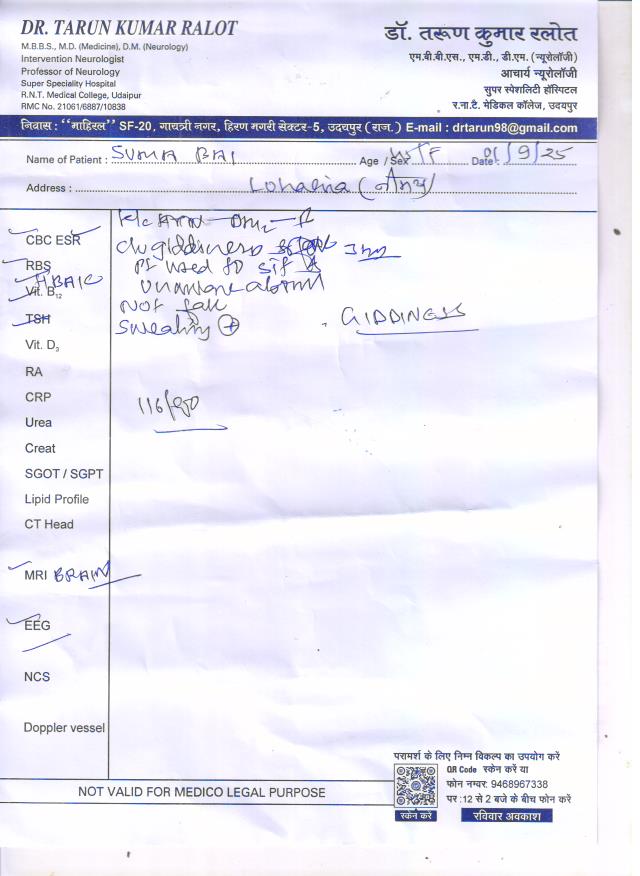 DR. TARUN KUMAR RALOT
M.B.B.S., M.D. (Medicine), D.M. (Neurology)
Intervention Neurologist
Professor of Neurology
Super Speciality Hospital
R.N.T. Medical College, Udaipur
RMC No. 21061/6887/10838
डॉ. तरूण कुमार रलोत
एम.बी.बी.एस., एम.डी., डी.एम. (न्यूरोलॉजी)
आचार्य न्यूरोलॉजी
सुपर स्पेशलिटी हॉस्पिटल
र.ना.टै. मेडिकल कॉलेज, उदयपुर
निवास : "माहिरल" SF-20, गायत्री नगर, हिरण मगरी सेक्टर-5, उदयपुर (राज.) E-mail : drtarun98@gmail.com
Name of Patient : SUMA BAI Age / Sex F Date : /9/25
Address :
CBC ESR
RBS
HBA1C
Vit. B12
TSH
Vit. D3
RA
CRP
Urea
Creat
SGOT / SGPT
Lipid Profile
CT Head
MRI BRAIN
EEG
NCS
Doppler vessel
giddiness
Not
Sweating +
GIDDINESS
116/80
परामर्श के लिए निम्न विकल्प का उपयोग करें
QR Code स्केन करें या
फोन नम्बर: 9468967338
पर :12 से 2 बजे के बीच फोन करें
स्केन करें
रविवार अवकाश
NOT VALID FOR MEDICO LEGAL PURPOSE